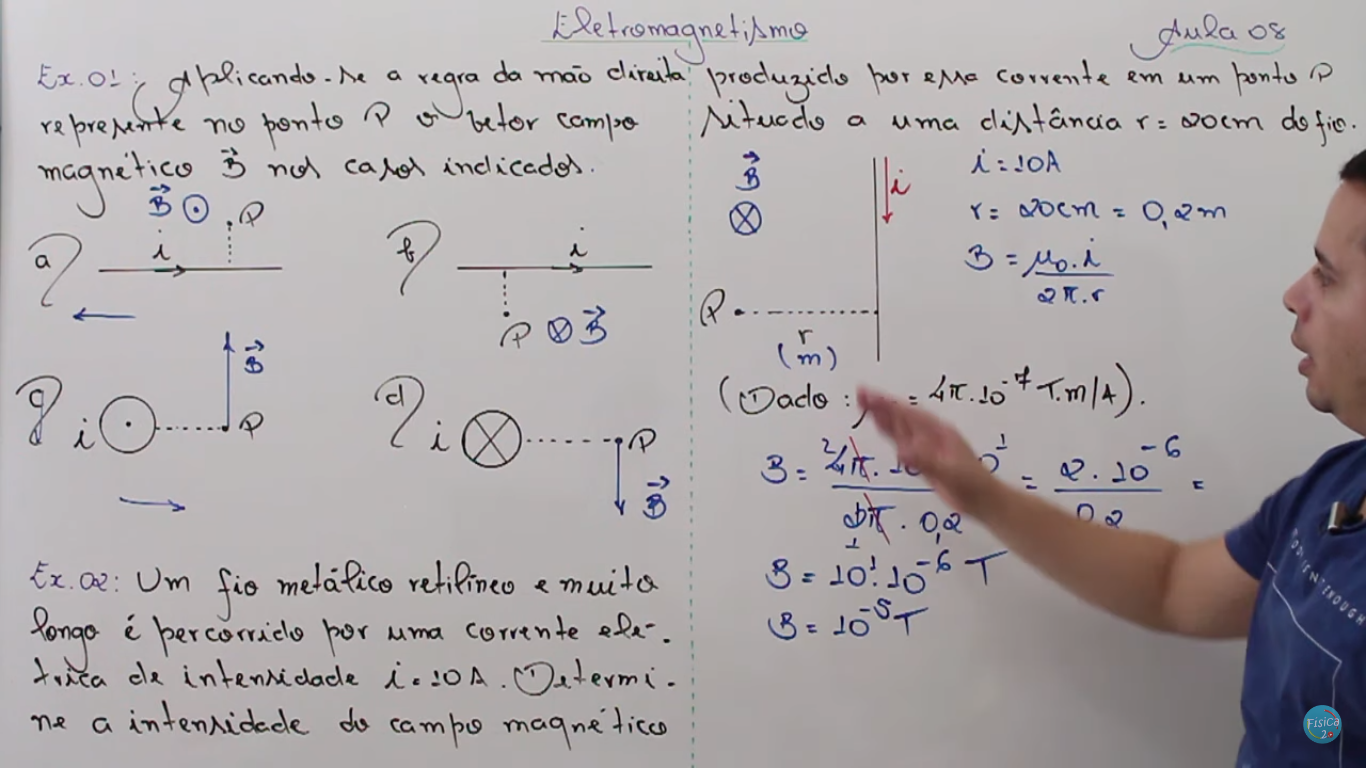 Eletromagnetismo
Aula 08
Ex. 01: Aplicando-se a regra da mão direita
represente no ponto P o vetor campo
magnético B⃗ nos casos indicados.
a) i B⃗ ⊙ P
b) i P ⊗ B⃗
c) i ⊙ P B⃗
d) i ⊗ P B⃗
Ex. 02: Um fio metálico retilíneo e muito
longo é percorrido por uma corrente elé-
trica de intensidade i = 10A. Determi-
ne a intensidade do campo magnético
produzido por essa corrente em um ponto P
situado a uma distância r = 20cm do fio.
B⃗ ⊗
i
P
r
(m)
i = 10A
r = 20cm = 0,2m
B = μ0.i / 2π.r
(Dado: = 4π.10^-7 T.m/A).
B = 4π.10 / 2π.0,2 = 2.10^-6 / 0,2 =
B = 10^1.10^-6 T
B = 10^-5 T
Física
2.0